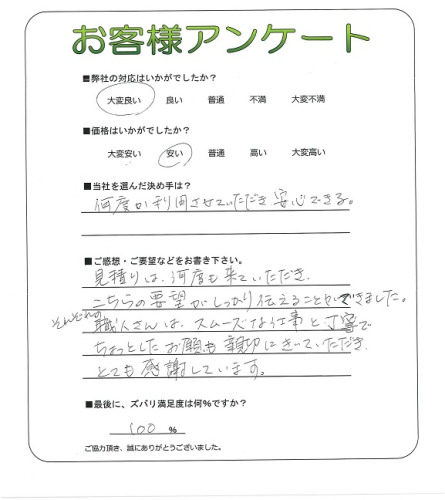 お客様アンケート
■弊社の対応はいかがでしたか?
大変良い 良い 普通 不満 大変不満
■価格はいかがでしたか?
大変安い 安い 普通 高い 大変高い
■当社を選んだ決め手は?
何度か利用させていただき安心できる。
■ご感想・ご要望などをお書き下さい。
見積りは、何度も来ていただき、
こちらの要望がしっかり伝えることができました。
それぞれの
職人さんは、スムーズな仕事と丁寧で
ちょっとしたお願も親切にきいていただき
とても感謝しています。
■最後に、ズバリ満足度は何%ですか?
100 %
ご協力頂き、誠にありがとうございました。